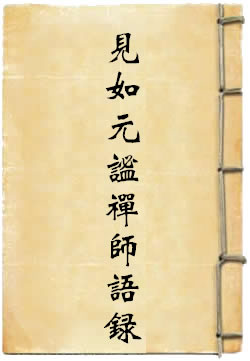 見如元謐禪師語録